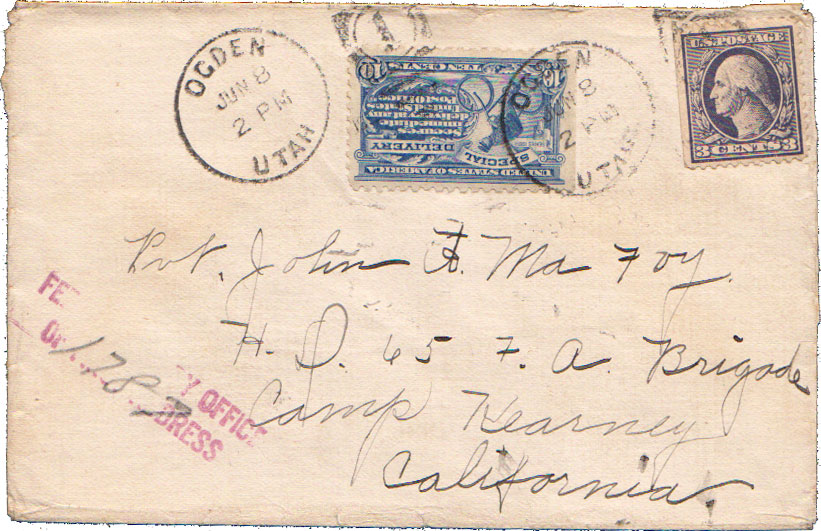 OGDEN
JUN 8
2 PM
UTAH
UNITED STATES OF AMERICA
SPECIAL DELIVERY
Secures immediate delivery at any
TEN CENTS
10
OGDEN
JUN 8
2 PM
UTAH
U.S. POSTAGE
3 CENTS 3
Pvt. John A. Ma Foy.
H. D. 65 F. A. Brigade
Camp Kearney
California
FE
1783
Y OFFICE
DRESS